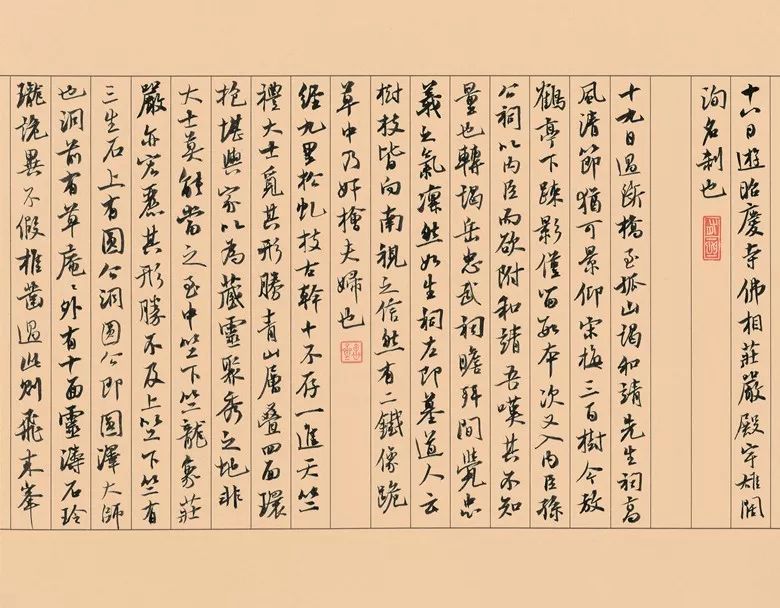 十六日遊昭慶寺佛相莊嚴殿宇雄闊
洵名刹也
十九日過斷橋至孤山謁和靖先生祠高
風清節猶可景仰宋梅三百樹今放
鶴亭下疎影僅留數本次又入内臣孫
公祠以内臣而欲附和靖吾嘆其不知
量也轉謁岳忠武祠瞻拜間覺忠
義之氣凜然如生祠左即墓道人云
樹枝皆向南視之信然有二鐵像跪
草中乃奸檜夫婦也
經九里松虬枝古幹十不存一進天竺
禮大士覓其形勝青山層叠四面環
抱堪輿家以為藏靈聚秀之地非
大士莫能當之至中竺下竺龍象莊
嚴亦宏麗其形勝不及上竺下竺有
三生石上有圓公洞圓公即圓澤大師
也洞前有草庵庵外有十面靈濤石玲
瓏詭異不假椎鑿過此則飛来峯